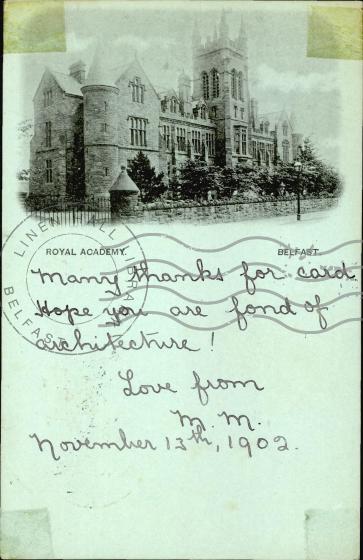 ROYAL ACADEMY. BELFAST.
LINEN HALL LIBRARY
BELFAST
Many thanks for card.
Hope you are fond of
architecture!
Love from
M. M.
November 13th, 1902.